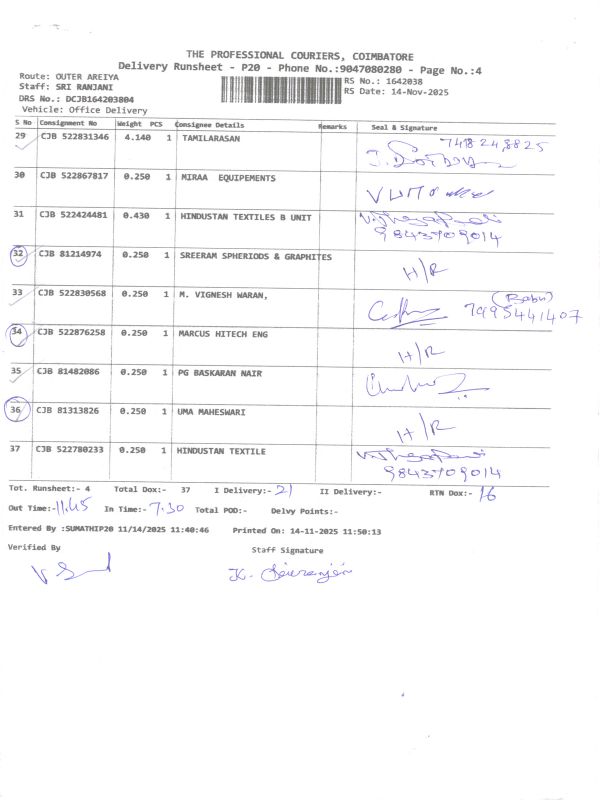 THE PROFESSIONAL COURIERS, COIMBATORE
Delivery Runsheet - P20 - Phone No.:9047080280 - Page No.:4
Route: OUTER AREIYA RS No.: 1642038
Staff: SRI RANJANI RS Date: 14-Nov-2025
DRS No.: DCJB164203804
Vehicle: Office Delivery
S No Consignment No Weight PCS Consignee Details Remarks Seal & Signature
29 CJB 522831346 4.140 1 TAMILARASAN
30 CJB 522867817 0.250 1 MIRAA EQUIPEMENTS
31 CJB 522424481 0.430 1 HINDUSTAN TEXTILES B UNIT
9843709014
32 CJB 81214974 0.250 1 SREERAM SPHERIODS & GRAPHITES H/R
33 CJB 522830568 0.250 1 M. VIGNESH WARAN, (Babu)
7995441407
34 CJB 522876258 0.250 1 MARCUS HITECH ENG H/R
35 CJB 81482086 0.250 1 PG BASKARAN NAIR
36 CJB 81313826 0.250 1 UMA MAHESWARI H/R
37 CJB 522780233 0.250 1 HINDUSTAN TEXTILE
9843709014
Tot. Runsheet:- 4 Total Dox:- 37 I Delivery:- 21 II Delivery:- RTN Dox:- 16
Out Time:- 11.45 In Time:- 7.30 Total POD:- Delvy Points:-
Entered By :SUMATHIP20 11/14/2025 11:40:46 Printed On: 14-11-2025 11:50:13
Verified By Staff Signature